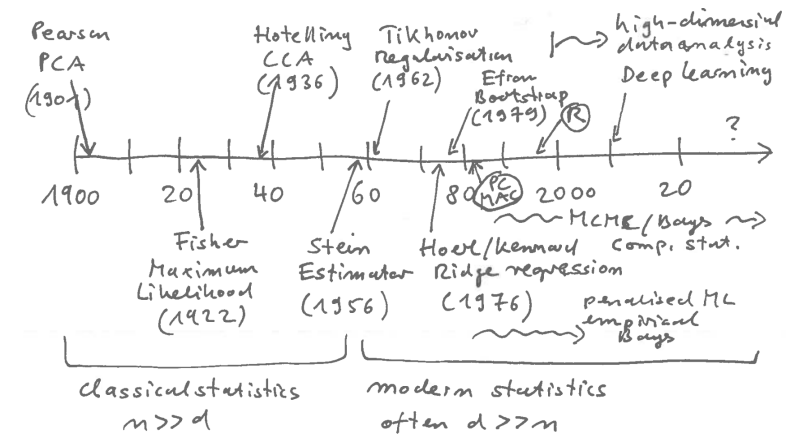 Pearson
PCA
(1901)
Hotelling
CCA
(1936)
Tikhonov
Regularisation
(1962)
Efron
Bootstrap
(1979)
R
high-dimensional
data analysis
Deep learning
?
1900
20
40
60
80
PC
MAC
2000
20
Fisher
Maximum
Likelihood
(1922)
Stein
Estimator
(1956)
Hoerl/Kennard
Ridge regression
(1976)
MCMC/Bays
Comp. stat.
penalised ML
empirical
Bays
classical statistics
n>>d
modern statistics
often d>>n